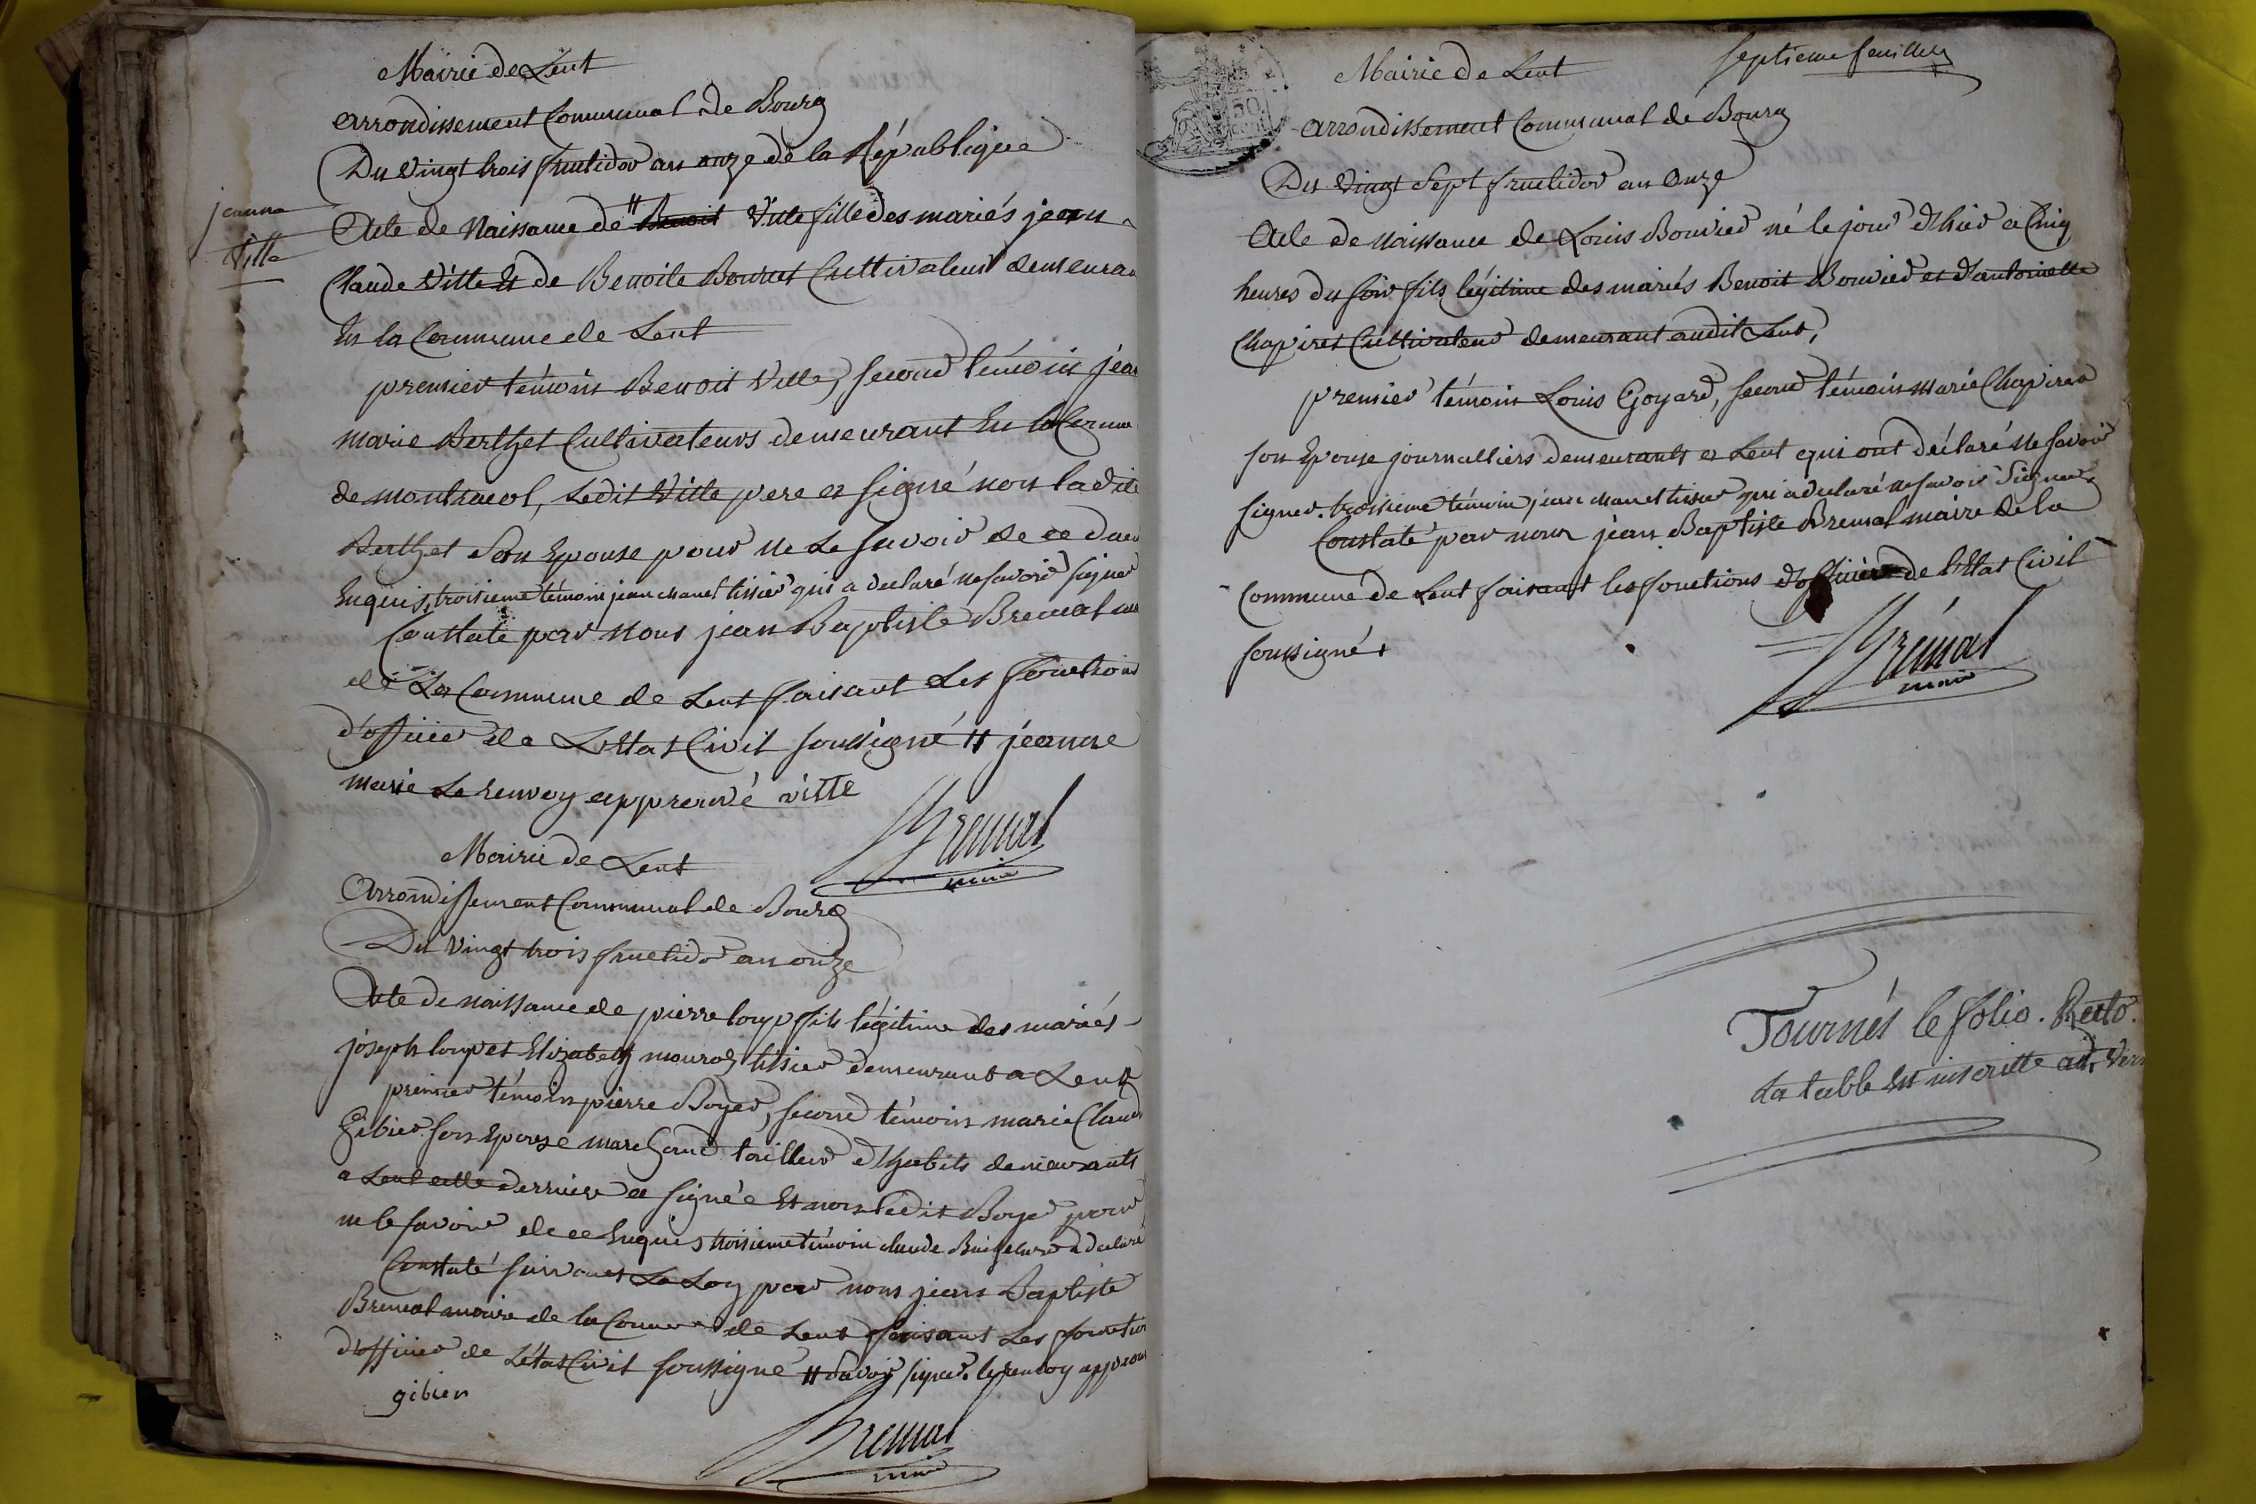 Mairie de Lent
arrondissement Communal de Bourg
Du vingt trois fructidor an onze de la République
jeanne
Ville
Acte de Naissance de # Benoit Ville fille des mariés jean
Claude Ville Et de Benoite Bournet Cultivateur demeuran
En la Commune de Lent
premier témoin Benoit Ville, second témoin jea
marie Berthet Cultivateurs demeurant En la Comm
de montracol, Ledit Ville pere a signé non la dite
Berthet Son Epouse pour ne Le savoir de ce due
Enquis, troisieme témoin jean manet tissier qui a declaré ne savoir signer
Constaté par Nous jean Baptiste Bremal
de La Commune de Lent faisant Les fonctions
d'officier de L'Etat Civil soussigné # jeanne
marie Le renvoy approuvé ville
Bremal
maire
Mairie de Lent
Arrondissement Communal de Bourg
Du vingt trois fructidor an onze
Acte de naissance de pierre loup fils légitime des mariés
joseph loup et Elizabeth tissier demeurant a Lent
premier témoin pierre Boyer, second témoin marie Claud
Gibier son Epouse marchand tailleur d'habits demeurants
a Lent cette derniere a signée Et non ledit Boyer pour
ne le savoir de ce Enquis troisieme témoin claude a declaré
Constaté suivant La Loy par nous jean Baptiste
Bremal maire de la Comm de Lent faisant Les fonction
d'officier de L'état Civil soussigné # savoir signer. le renvoy approu
gibier
Bremal
maire
septieme feuillet
Mairie de Lent
arrondissement Communal de Bourg
Du vingt Sept fructidor an onze
Acte de naissance de Louis Bouvier né le jour d'hier a Cinq
heures du soir fils légitime des mariés Benoit Bouvier et d'antoinette
Chapiret Cultivateur demeurant audit Lent,
premier témoin Louis Goyard, second témoin marie Chapiret
son Epouse journalliers demeurants a Lent qui ont déclaré ne savoir
signer. troisieme témoin jean manet tissier qui a declaré ne savoir Signer
Constaté par nous jean Baptiste Bremal maire de la
Commune de Lent faisant les fonctions d'officier de l'Etat Civil
soussigné
Bremal
maire
Tournés le folio. Recto.
La table Est inscritte au. Ver